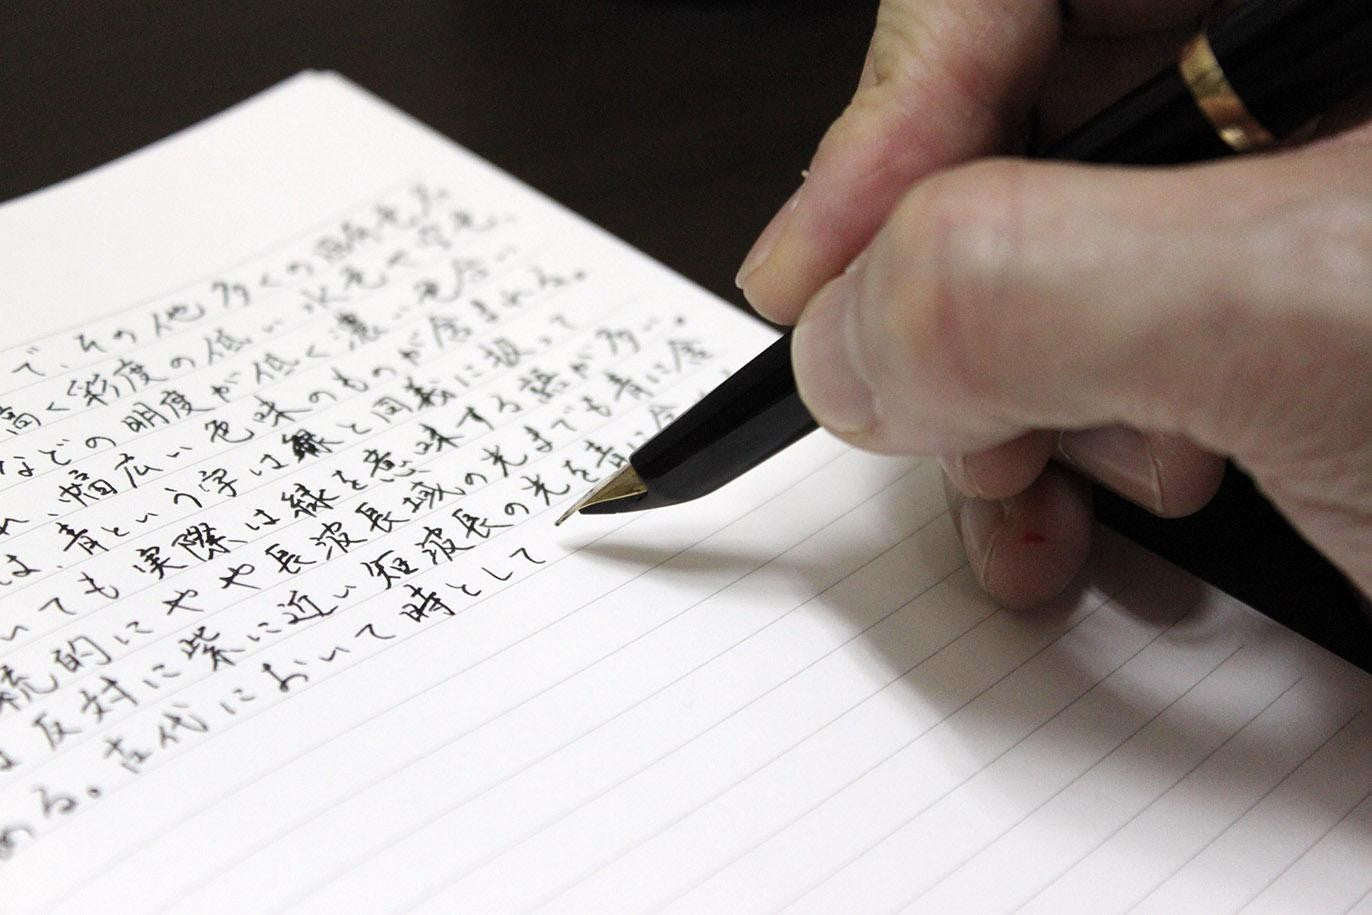 で、その他多くの
高く彩度の低い水色や空色、
などの明度が低く濃い色合い
れ、幅広い色味のものが含まれる。
は、青という字は緑と同義に扱って
いても実際は緑を意味する語が多い。
統的にやや長波長域の光までも青に含
は反対に紫に近い短波長の光を青に含
める。古代において時として